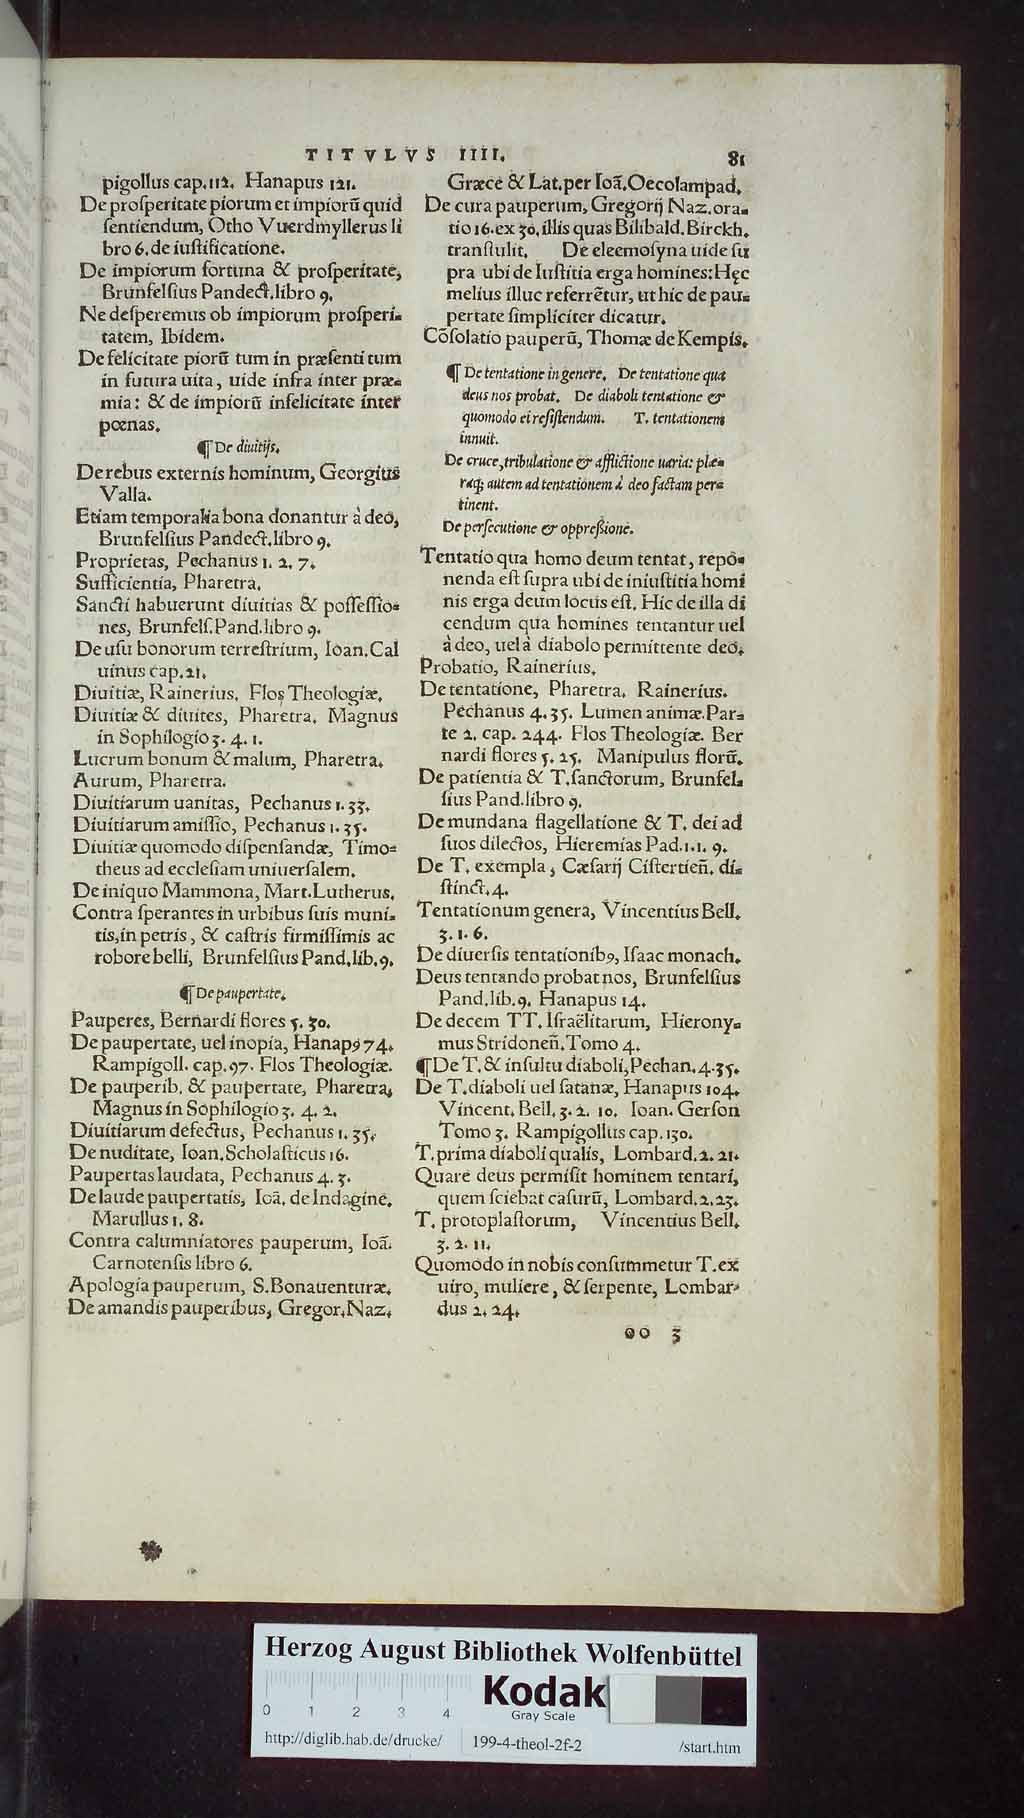 TITVLVS IIII.
81
pigollus cap.112. Hanapus 121.
De prosperitate piorum et impiorũ quid
sentiendum, Otho Vuerdmyllerus li
bro 6. de iustificatione.
De impiorum fortuna & prosperitate,
Brunfelsius Pandect. libro 9.
Ne desperemus ob impiorum prosperi-
tatem, Ibidem.
De felicitate piorũ tum in præsenti tum
in futura uita, uide infra inter præ-
mia: & de impiorũ infelicitate inter
pœnas.
¶ De diuitijs.
De rebus externis hominum, Georgius
Valla.
Etiam temporalia bona donantur à deo,
Brunfelsius Pandect. libro 9.
Proprietas, Pechanus 1. 2. 7.
Sufficientia, Pharetra.
Sancti habuerunt diuitias & possessio-
nes, Brunfels. Pand. libro 9.
De usu bonorum terrestrium, Ioan. Cal
uinus cap. 21.
Diuitiæ, Rainerius. Flos Theologiæ.
Diuitiæ & diuites, Pharetra. Magnus
in Sophilogio 3. 4. 1.
Lucrum bonum & malum, Pharetra.
Aurum, Pharetra.
Diuitiarum uanitas, Pechanus 1. 33.
Diuitiarum amissio, Pechanus 1. 35.
Diuitiæ quomodo dispensandæ, Timo-
theus ad ecclesiam uniuersalem.
De iniquo Mammona, Mart. Lutherus.
Contra sperantes in urbibus suis muni-
tis, in petris, & castris firmissimis ac
robore belli, Brunfelsius Pand. lib. 9.
¶ De paupertate.
Pauperes, Bernardi flores 5. 30.
De paupertate, uel inopia, Hanapꝰ 74.
Rampigoll. cap. 97. Flos Theologiæ.
De pauperib. & paupertate, Pharetra,
Magnus in Sophilogio 3. 4. 2.
Diuitiarum defectus, Pechanus 1. 35.
De nuditate, Ioan. Scholasticus 16.
Paupertas laudata, Pechanus 4. 3.
De laude paupertatis, Ioã. de Indagine.
Marullus 1. 8.
Contra calumniatores pauperum, Ioã.
Carnotensis libro 6.
Apologia pauperum, S. Bonauenturæ.
De amandis pauperibus, Gregor. Naz.
Græce & Lat. per Ioã. Oecolampad.
De cura pauperum, Gregorij Naz. ora-
tio 16. ex 30. illis quas Bilibald. Birckh.
transtulit. De eleemosyna uide su
pra ubi de Iustitia erga homines: Hęc
melius illuc referrẽtur, ut hic de pau-
pertate simpliciter dicatur.
Cõsolatio pauperũ, Thomæ de Kempis.
¶ De tentatione in genere. De tentatione qua
deus nos probat. De diaboli tentatione &
quomodo ei resistendum. T. tentationem
innuit.
De cruce, tribulatione & afflictione uaria: plæ-
raq; autem ad tentationem à deo factam per-
tinent.
De persecutione & oppressione.
Tentatio qua homo deum tentat, repo-
nenda est supra ubi de iniustitia homi
nis erga deum locus est. Hic de illa di
cendum qua homines tentantur uel
à deo, uel à diabolo permittente deo.
Probatio, Rainerius.
De tentatione, Pharetra. Rainerius.
Pechanus 4. 35. Lumen animæ. Par-
te 2. cap. 244. Flos Theologiæ. Ber
nardi flores 5. 25. Manipulus florũ.
De patientia & T. sanctorum, Brunfel-
sius Pand. libro 9.
De mundana flagellatione & T. dei ad
suos dilectos, Hieremias Pad. 1. 1. 9.
De T. exempla, Cæsarij Cistertieñ. di-
stinct. 4.
Tentationum genera, Vincentius Bell.
3. 1. 6.
De diuersis tentationibꝰ, Isaac monach.
Deus tentando probat nos, Brunfelsius
Pand. lib. 9. Hanapus 14.
De decem TT. Israëlitarum, Hierony-
mus Stridoneñ. Tomo 4.
¶ De T. & insultu diaboli, Pechan. 4. 35.
De T. diaboli uel satanæ, Hanapus 104.
Vincent. Bell. 3. 2. 10. Ioan. Gerson
Tomo 3. Rampigollus cap. 130.
T. prima diaboli qualis, Lombard. 2. 21.
Quare deus permisit hominem tentari,
quem sciebat casurũ, Lombard. 2. 23.
T. protoplastorum, Vincentius Bell.
3. 2. 11.
Quomodo in nobis consummetur T. ex
uiro, muliere, & serpente, Lombar-
dus 2. 24.
oo 3
Herzog August Bibliothek Wolfenbüttel
0 1 2 3 4
Kodak
Gray Scale
http://diglib.hab.de/drucke/ 199-4-theol-2f-2 /start.htm